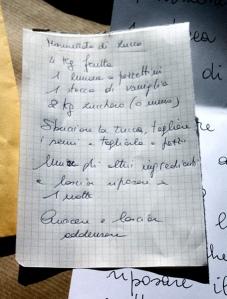 Marmellata di zucca
4 Kg frutta
1 limone a pezzettini
1 stecca di vaniglia
2 Kg zucchero (o meno)
Sbucciare la zucca, togliere
i semi e tagliarla a pezzi
Unire gli altri ingredienti
e lasciar riposare x
1 notte
Cuocere e lasciar
addensare
di
riposare